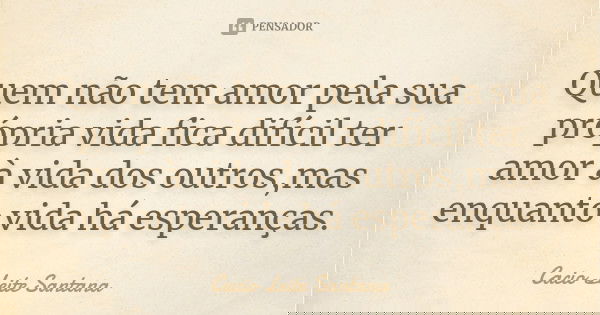 PENSADOR
Quem não tem amor pela sua
própria vida fica difícil ter
amor à vida dos outros,mas
enquanto vida há esperanças.
Cacio Leite Santana